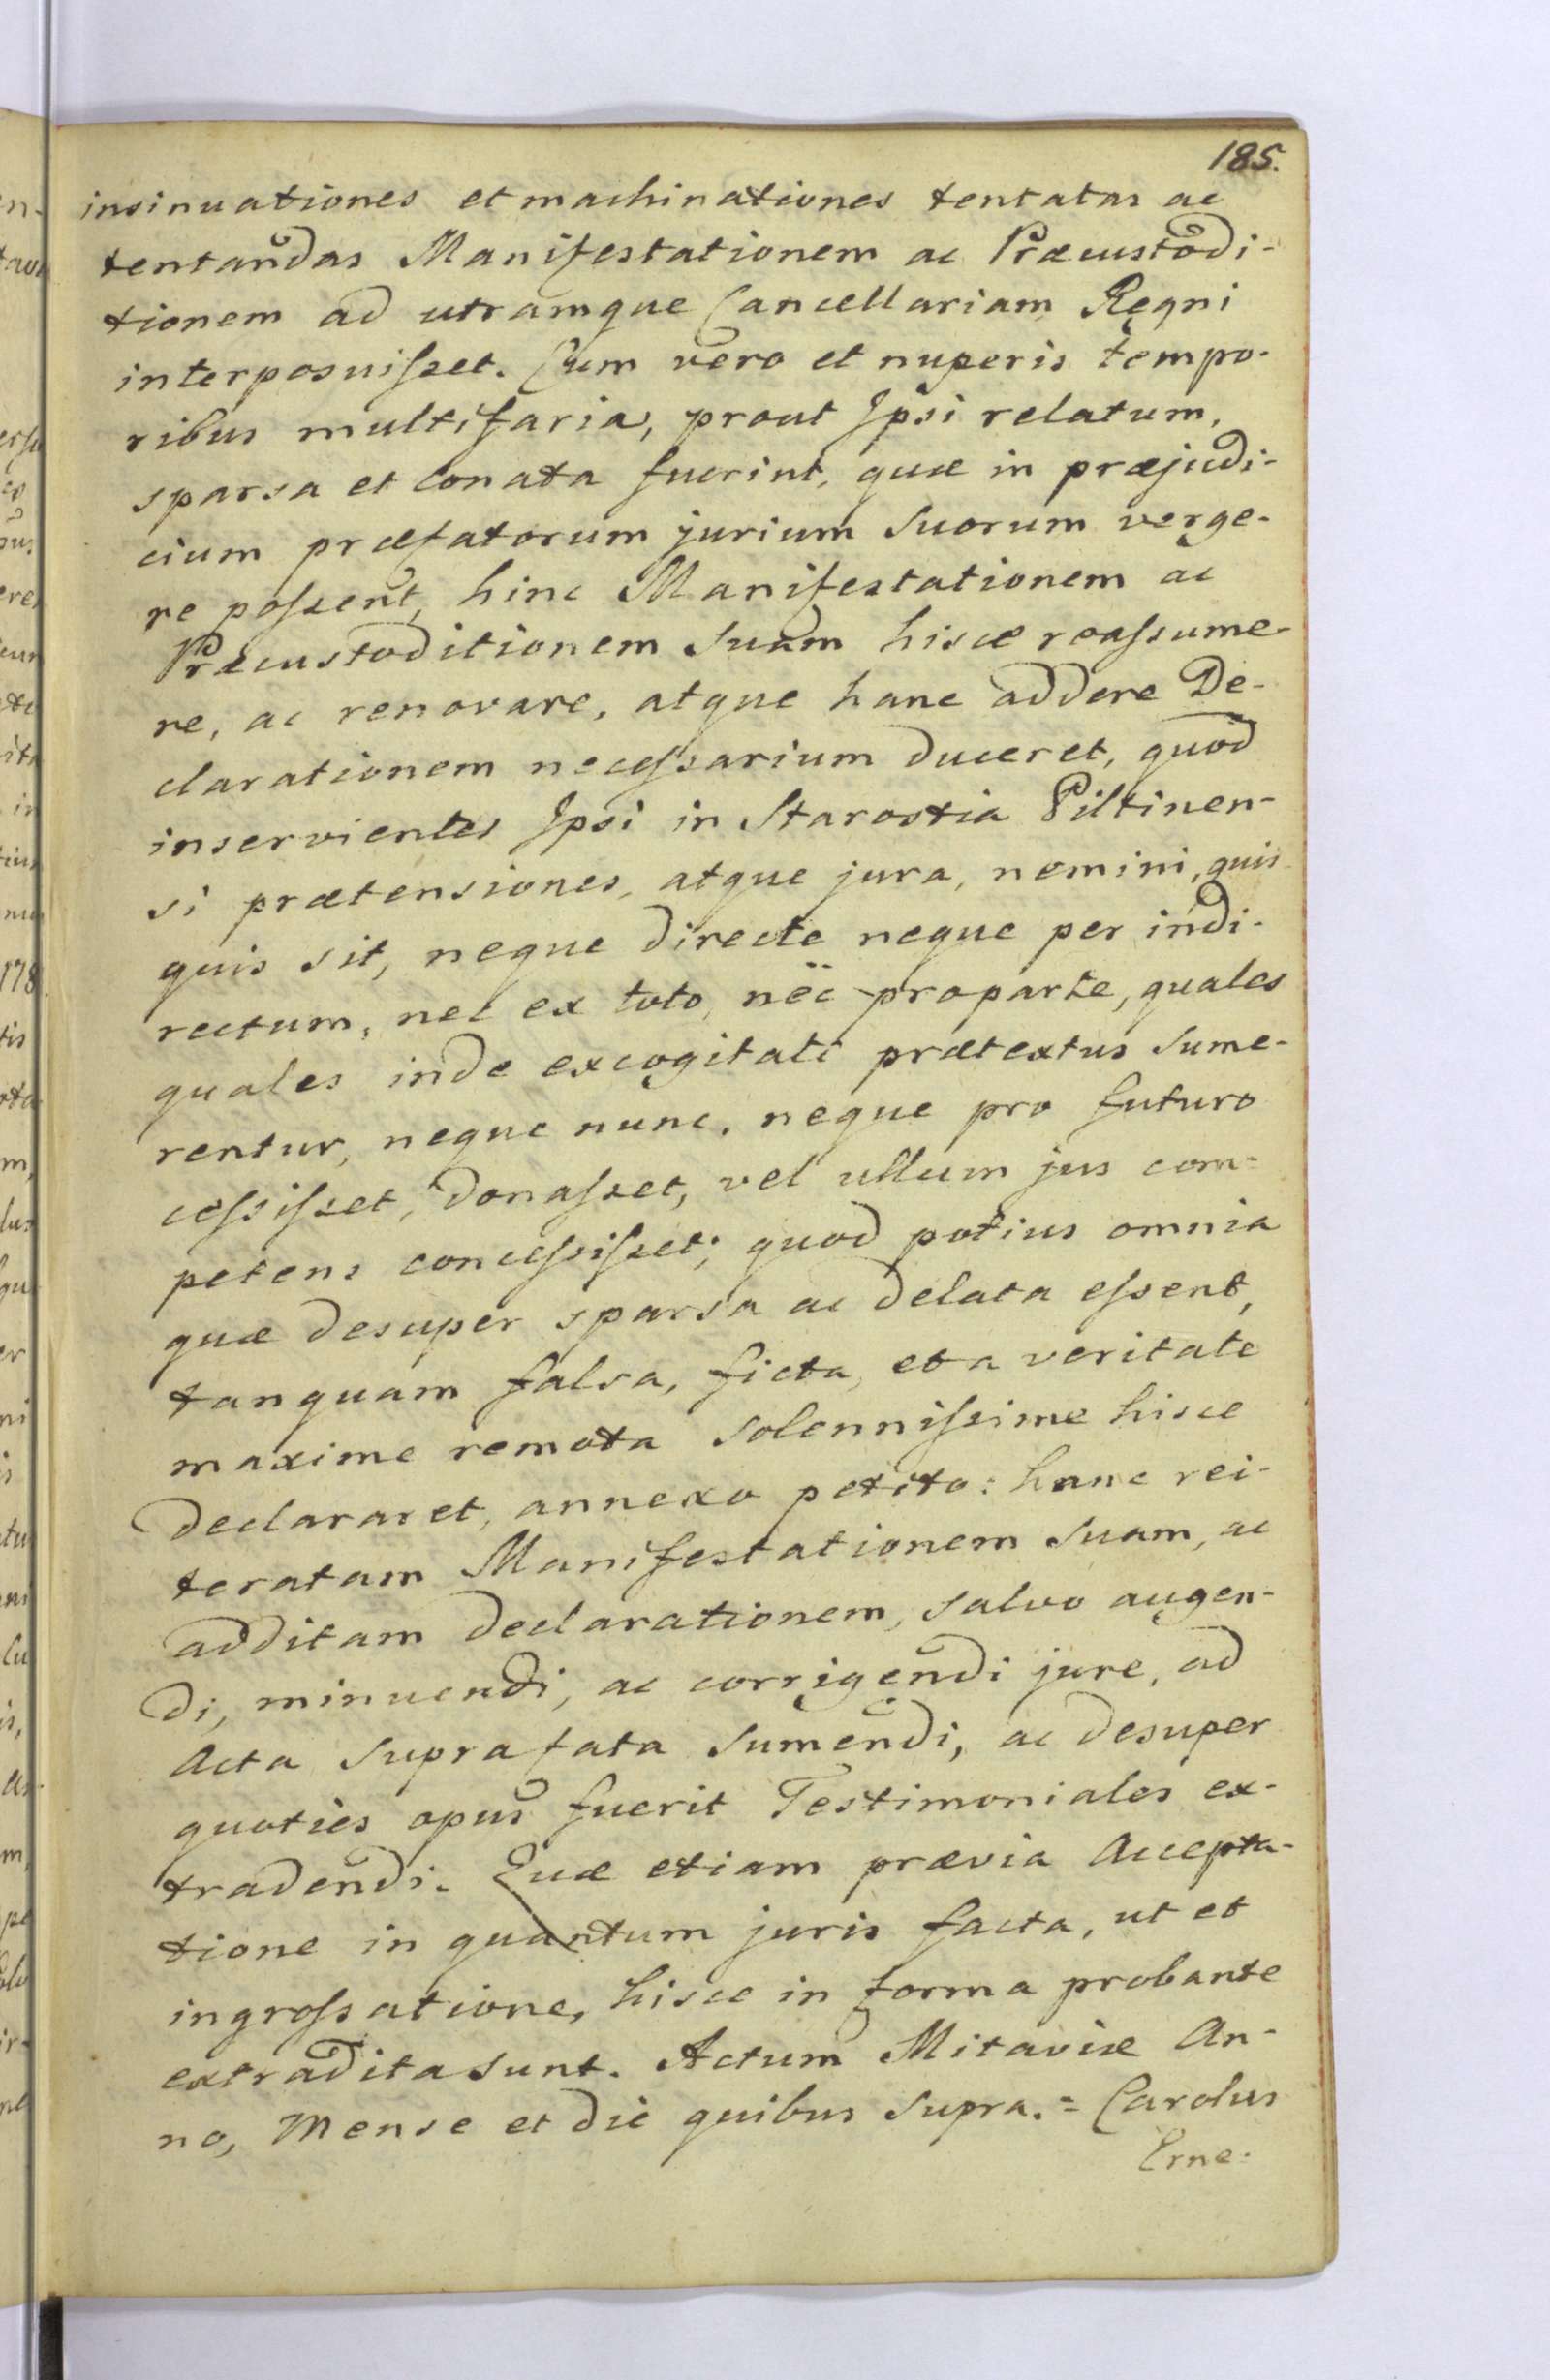 185.
insinuationes et machinationes tentatas ac
tentandas Manifestationem ac Præcustodi-
tionem ad utramque Cancellariam Regni
interposuisset. Cum vero et nuperis tempo-
ribus multifaria, prout Ipsi relatum,
sparsa et Conata fuerint, quæ in præjudi-
cium præfatorum jurium Suorum verge-
re possent, hinc Manifestationem ac
Præcustoditionem Suam hisce reassume-
re, ac renovare, atque hanc addere De-
clarationem necessarium duceret, quod
inservientes Ipsi in Starostia Piltinen-
si prætensiones, atque jura, nemini, quis
quis sit, neque directe neque per indi-
rectum, nec ex toto, nec pro parte, quales
quales inde excogitati prætextus Sume-
rentur, neque nunc, neque pro futuro
cessisset, donasset, vel ullum jus com-
petens concessisset; quod potius omnia
quæ desuper sparsa ac delata essent,
tanquam falsa, ficta, et a veritate
maxime remota Solennissime hisce
declararet, annexo petito: hanc rei-
teratam Manifestationem Suam, ac
additam declarationem, salvo augen-
di, minuendi, ac corrigendi jure, ad
Acta Suprafata Sumendi, ac desuper
quoties opus fuerit Testimoniales ex-
tradendi. Quæ etiam prævia Accepta-
tione in quantum juris facta, ut et
ingrossatione, hisce in forma probante
extradita sunt. Actum Mitaviæ An-
no, Mense et die quibus Supra. = Carolus
Erne-